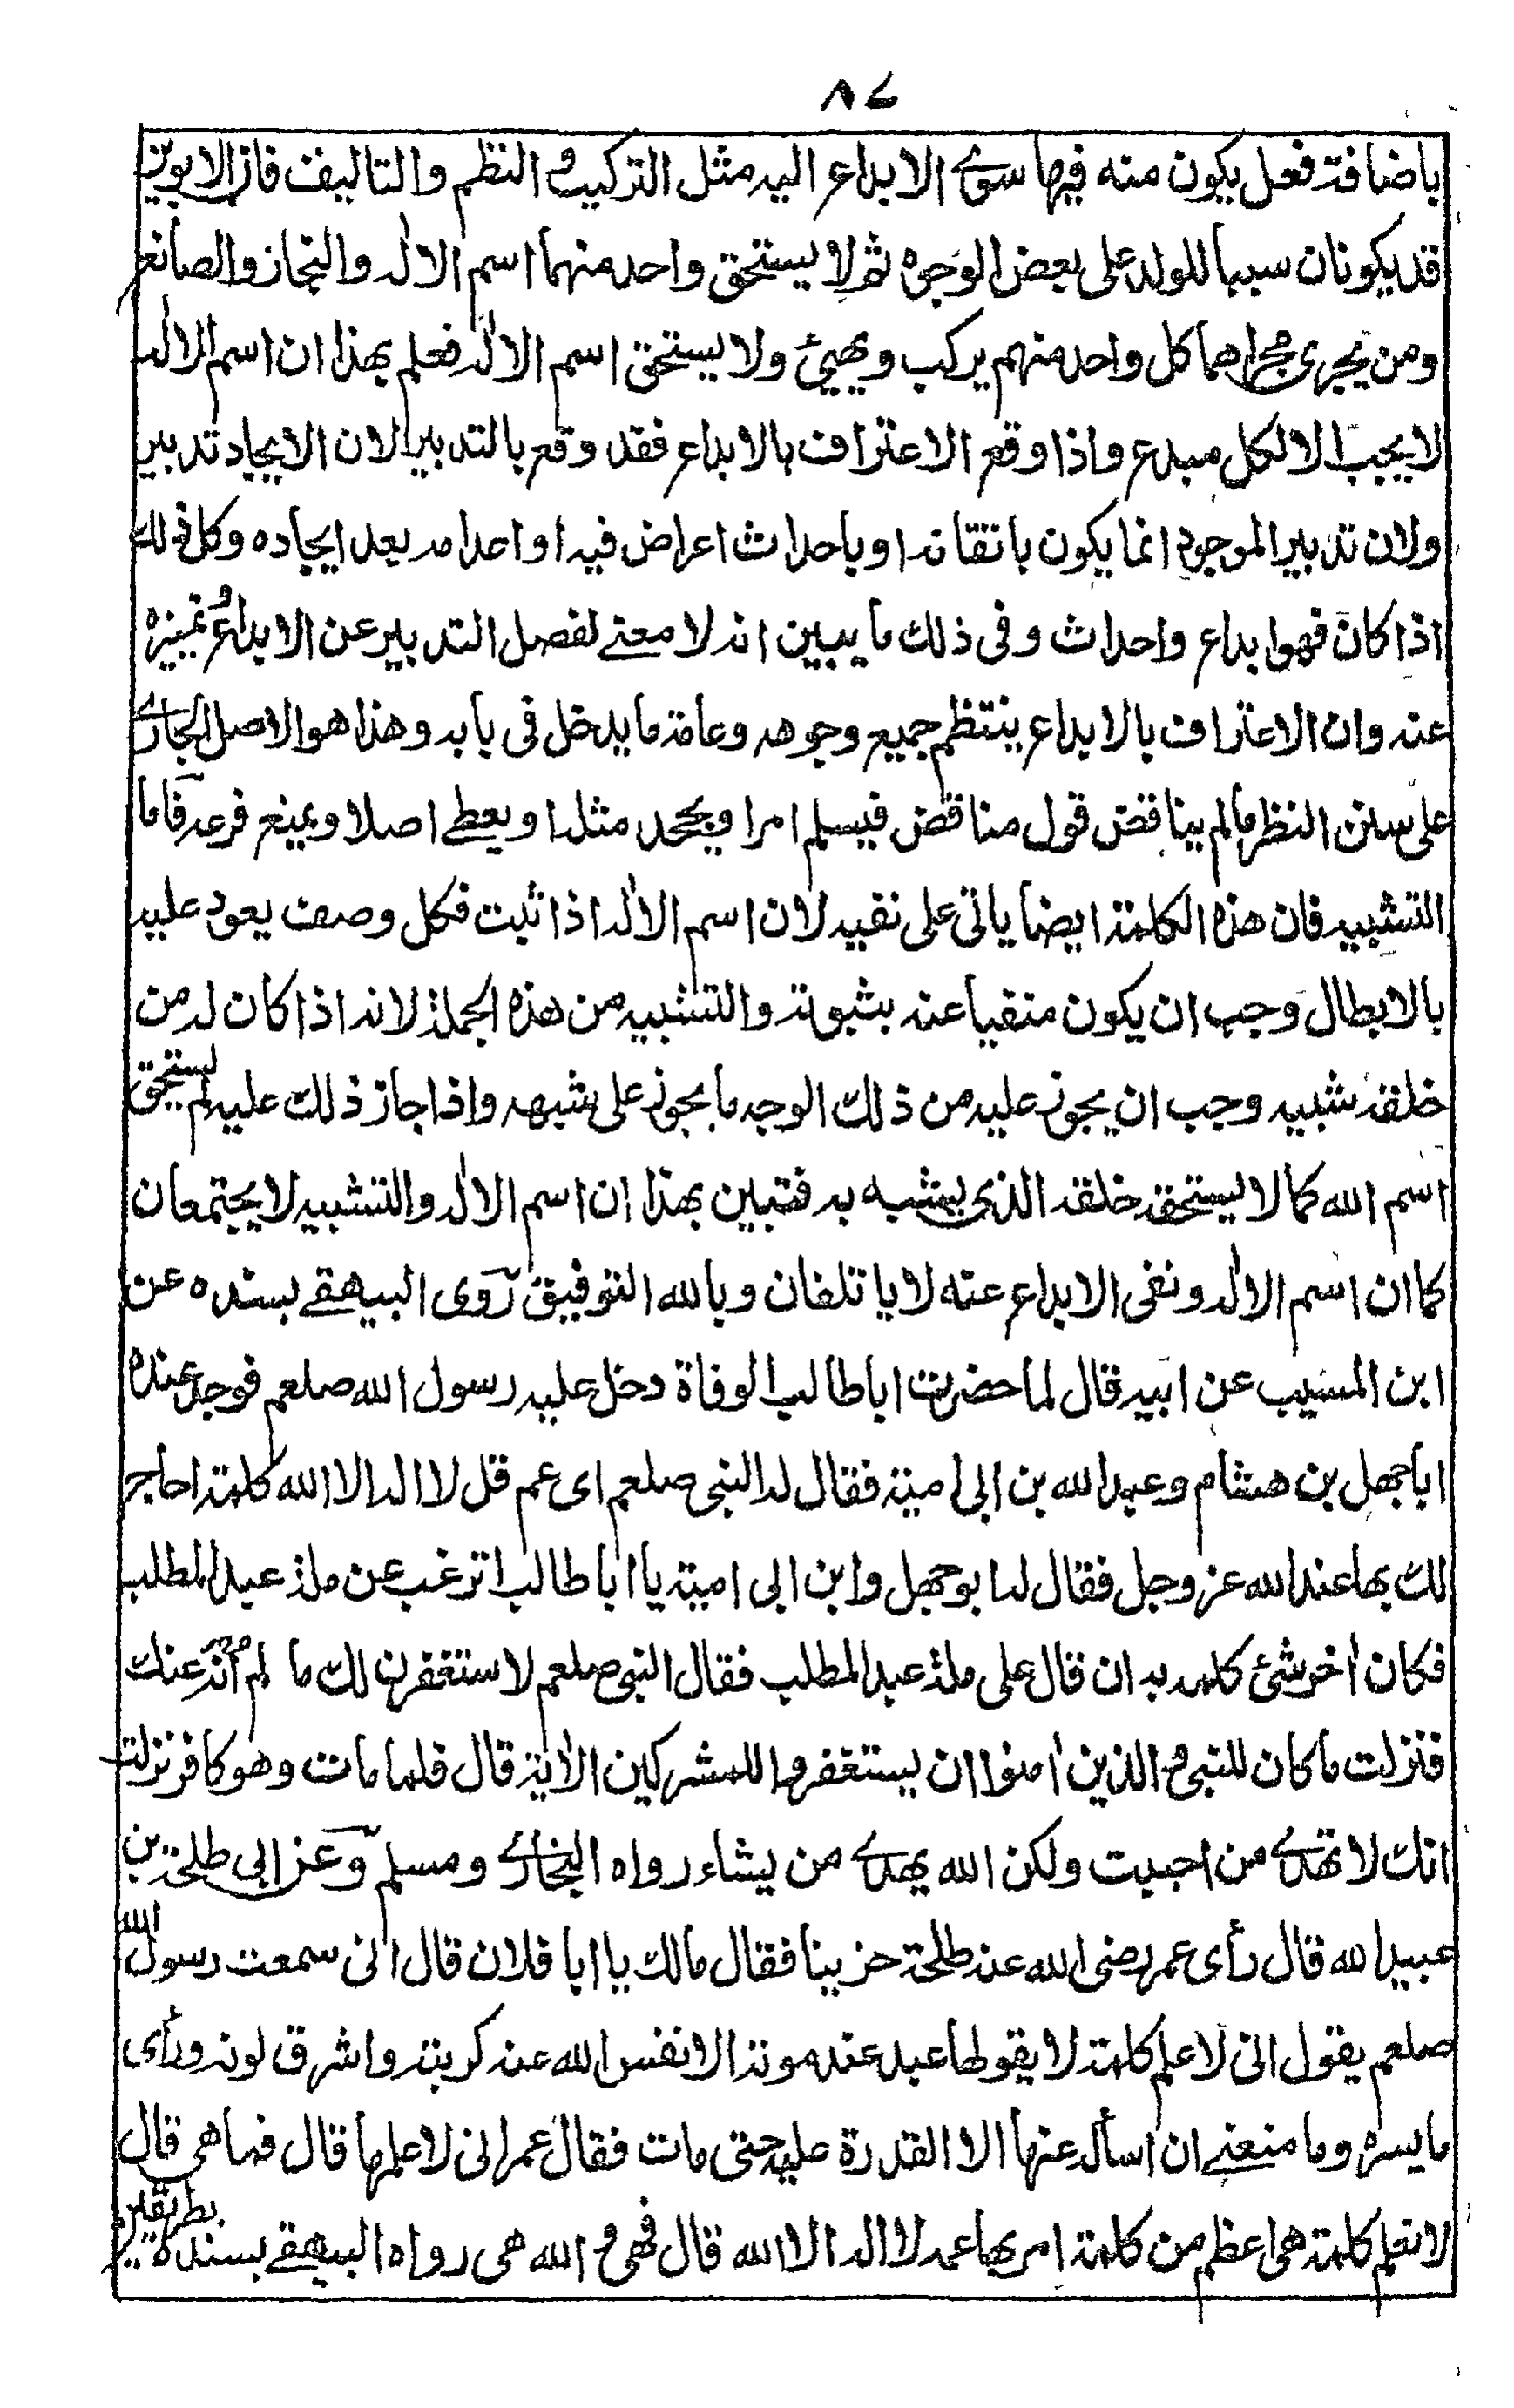 ٨٤
باضافة فعل يكون منه فيها سوى الابداع اليه مثل التركيب و النظم والتاليف فان الابوين
قد يكونان سببا للولد على بعض الوجوه ثم لا يستحق واحد منهما اسم الاله والنجار والصانع
ومن يجرى مجراهما كل واحد منهم يركب ويهيئ ولا يستحق اسم الاله فعلم بهذا ان اسم الاله
لا يجب الا لكل مبدع واذا وقع الاعتراف بالابداع فقد وقع بالتدبير لان الايجاد تدبير
ولان تدبير الموجود انما يكون باتقانه او باحداث اعراض فيه او اعدامه بعد ايجاده وكل ذلك
اذا كان فهو ابداع واحداث وفى ذلك ما يبين انه لا معنى لفصل التدبير عن الابداع وتمييزه
عنه وان الاعتراف بالابداع ينتظم جميع وجوهه وعامة ما يدخل فى بابه وهذا هو الاصل الجارى
على سنن النظر مالم يناقض قول مناقض فيسلم امرا ويجحد مثله او يعطى اصلا ويمنع فرعه فاما
التشبيه فان هذه الكلمة ايضا ياتى على نفيه لان اسم الاله اذا ثبت فكل وصف يعود عليه
بالابطال وجب ان يكون منفيا عنه بثبوته والتشبيه من هذه الجملة لانه اذا كان له من
خلقه شبيه وجب ان يجوز عليه من ذلك الوجه ما يجوز على شبهه واذا جاز ذلك عليه لم يستحق
اسم الله كما لا يستحقه خلقه الذى يشبه به فتبين بهذا ان اسم الاله والتشبيه لا يجتمعان
كما ان اسم الاله ونفى الابداع عنه لا ياتلفان وبالله التوفيق روى البيهقى بسنده عن
ابن المسيب عن ابيه قال لما حضرت ابا طالب الوفاة دخل عليه رسول الله صلعم فوجد عنده
ابا جهل بن هشام وعبد الله بن ابى امية فقال له النبى صلعم اى عم قل لا اله الا الله كلمة احاج
لك بها عند الله عز وجل فقال له ابو جهل وابن ابى امية يا ابا طالب اترغب عن ملة عبد المطلب
فكان اخر شئ كلمه به ان قال على ملة عبد المطلب فقال النبى صلعم لاستغفرن لك ما لم أنه عنك
فنزلت ما كان للنبى و الذين امنوا ان يستغفروا للمشركين الاية قال فلما مات وهو كافر نزلت
انك لا تهدى من احببت ولكن الله يهدى من يشاء رواه البخارى ومسلم وعن ابى طلحة بن
عبيد الله قال رأى عمر رضى الله عنه طلحة حزينا فقال مالك يا ابا فلان قال انى سمعت رسول الله
صلعم يقول انى لاعلم كلمة لا يقولها عبد عند موته الا نفس الله عنه كربته واشرق لونه ورأى
ما يسره وما منعنى ان اسأله عنها الا القدرة عليه حتى مات فقال عمر انى لاعلمها قال فما هى قال
لا نعلم كلمة هى اعظم من كلمة امر بها عمه لا اله الا الله قال فهى و الله هى رواه البيهقى بسنده بطريقين